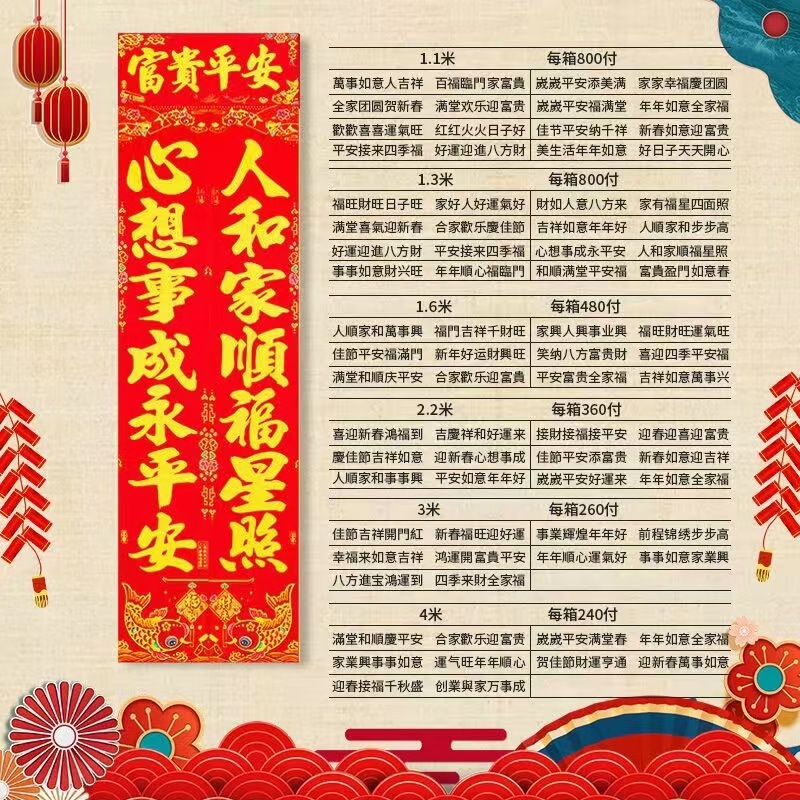 富貴平安
人和家順福星照
心想事成永平安
1.1米 每箱800付
萬事如意人吉祥 百福臨門家富貴 崴崴平安添美满 家家幸福慶团圆
全家团圆贺新春 满堂欢乐迎富贵 崴崴平安福满堂 年年如意全家福
歡歡喜喜運氣旺 红红火火日子好 佳节平安纳千祥 新春如意迎富贵
平安接来四季福 好運迎進八方財 美生活年年如意 好日子天天開心
1.3米 每箱800付
福旺財旺日子旺 家好人好運氣好 財如人意八方来 家有福星四面照
满堂喜氣迎新春 合家歡乐慶佳節 吉祥如意年年好 人順家和步步高
好運迎進八方財 平安接来四季福 心想事成永平安 人和家順福星照
事事如意財兴旺 年年順心福臨門 和順满堂平安福 富貴盈門如意春
1.6米 每箱480付
人順家和萬事興 福門吉祥千財旺 家興人興事业興 福旺財旺運氣旺
佳節平安福滿門 新年好运財興旺 笑纳八方富贵財 喜迎四季平安福
满堂和順庆平安 合家歡乐迎富貴 平安富贵全家福 吉祥如意萬事兴
2.2米 每箱360付
喜迎新春鴻福到 吉慶祥和好運来 接財接福接平安 迎春迎喜迎富贵
慶佳節吉祥如意 迎新春心想事成 佳節平安添富贵 新春如意迎吉祥
人順家和事事興 平安如意年年好 崴崴平安好運来 年年如意全家福
3米 每箱260付
佳節吉祥開門紅 新春福旺迎好運 事業輝煌年年好 前程锦绣步步高
幸福来如意吉祥 鸿運開富貴平安 年年順心運氣好 事事如意家業興
八方進宝鴻運到 四季来財全家福
4米 每箱240付
滿堂和順慶平安 合家歡乐迎富贵 崴崴平安满堂春 年年如意全家福
家業興事事如意 運气旺年年順心 贺佳節財運亨通 迎新春萬事如意
迎春接福千秋盛 创業與家万事成